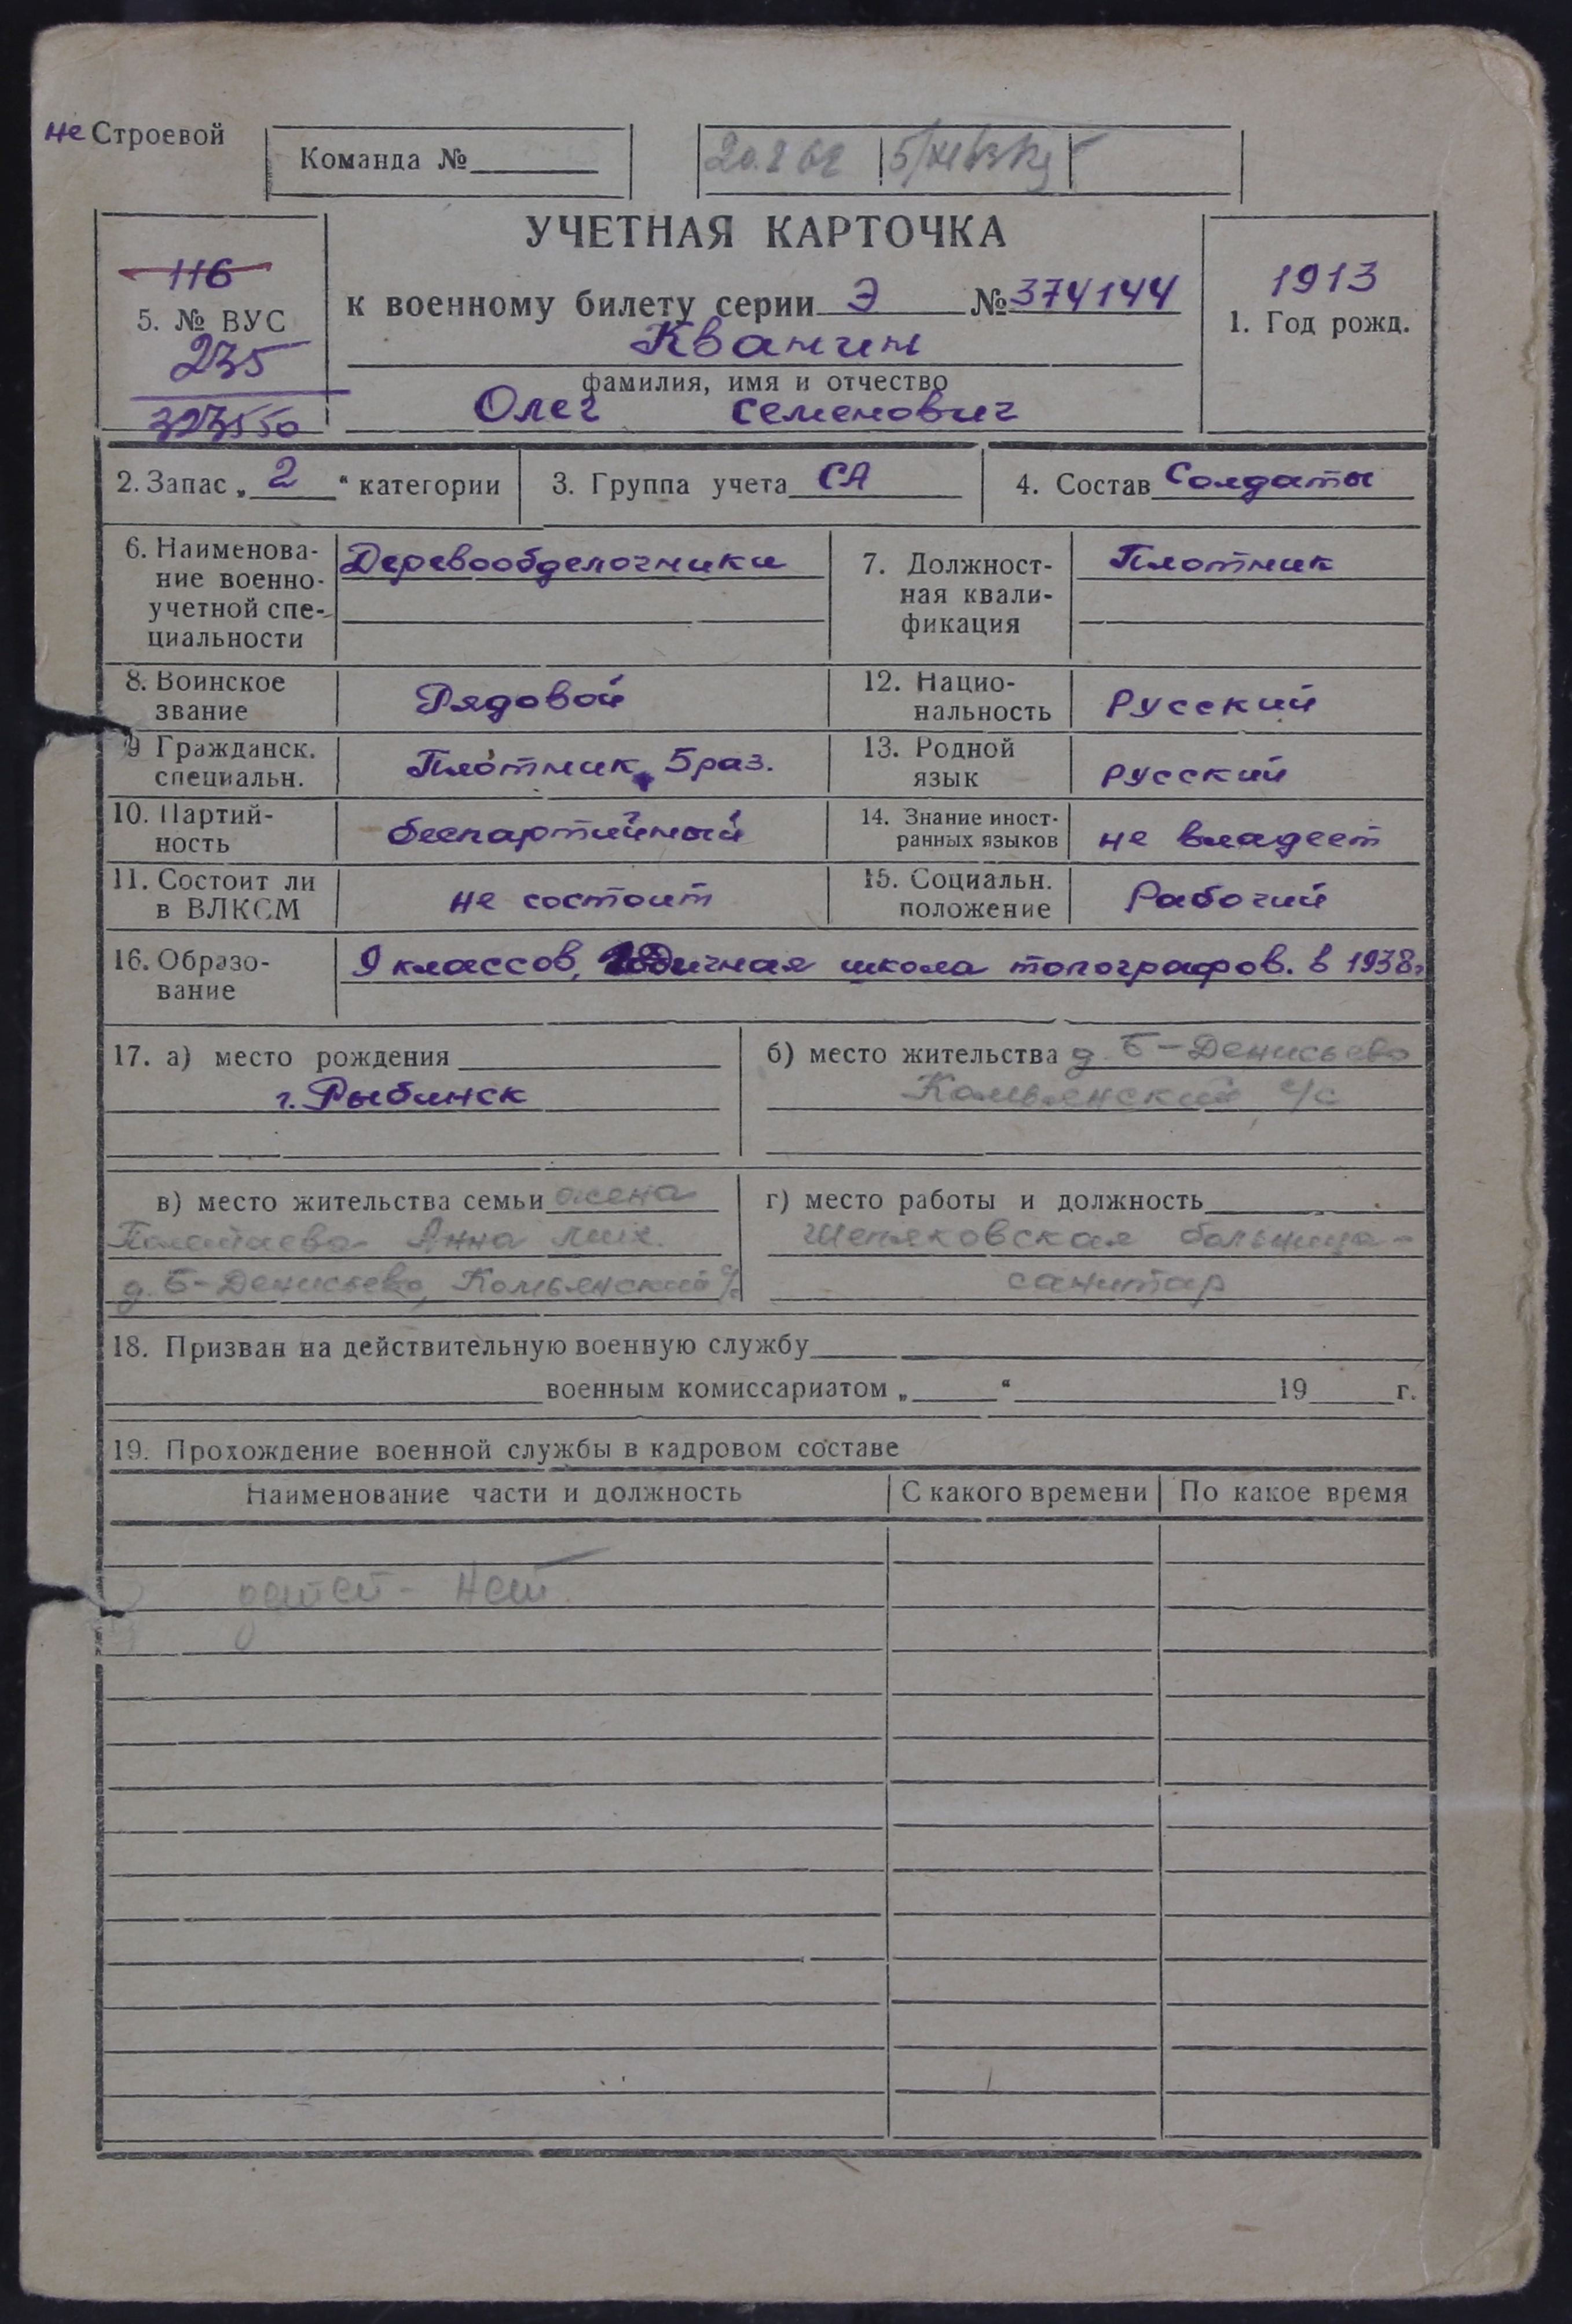 не Строевой
Команда №
20.2 62
УЧЕТНАЯ КАРТОЧКА
116
5. № ВУС
235
323550
к военному билету серии Э № 374144
Квантин
фамилия, имя и отчество
Олег Семенович
1913
1. Год рожд.
2. Запас „ 2 “ категории
3. Группа учета СА
4. Состав Солдаты
6. Наименова-
ние военно-
учетной спе-
циальности
Деревообделочники
7. Должност-
ная квали-
фикация
Плотник
8. Воинское
звание
Рядовой
12. Нацио-
нальность
Русский
9 Гражданск.
специальн.
Плотник, 5 раз.
13. Родной
язык
русский
10. Партий-
ность
беспартийный
14. Знание иност-
ранных языков
не владеет
11. Состоит ли
в ВЛКСМ
не состоит
15. Социальн.
положение
Рабочий
16. Образо-
вание
9 классов, годичная школа топографов. в 1938г
17. а) место рождения
г. Рыбинск
б) место жительства д. Б-Денисьево
с/с
в) место жительства семьи жена
Анна Мих.
д. Б-Денисьево, с/с
г) место работы и должность
больница -
санитар
18. Призван на действительную военную службу
военным комиссариатом „ “ 19 г.
19. Прохождение военной службы в кадровом составе
Наименование части и должность
С какого времени
По какое время
детей - нет